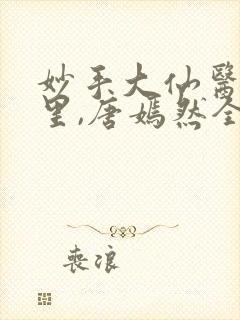 妙手大仙醫
里,唐嫣然全
喪浪